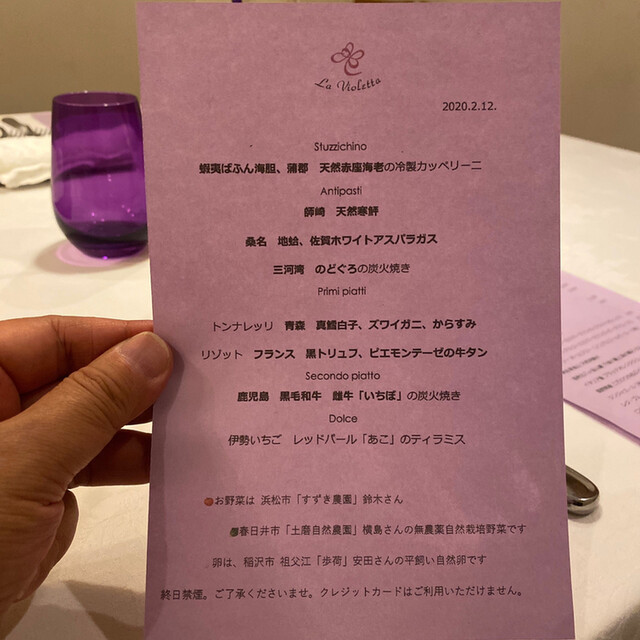 La Violetta
2020.2.12.
Stuzzichino
蝦夷ばふん海胆、蒲郡 天然赤座海老の冷製カッペリーニ
Antipasti
師崎 天然寒鮃
桑名 地蛤、佐賀ホワイトアスパラガス
三河湾 のどぐろの炭火焼き
Primi piatti
トンナレッリ 青森 真鱈白子、ズワイガニ、からすみ
リゾット フランス 黒トリュフ、ピエモンテーゼの牛タン
Secondo piatto
鹿児島 黒毛和牛 雌牛「いちぼ」の炭火焼き
Dolce
伊勢いちご レッドパール「あこ」のティラミス
お野菜は 浜松市「すずき農園」鈴木さん
春日井市「土磨自然農園」横島さんの無農薬自然栽培野菜です
卵は、稲沢市 祖父江「歩荷」安田さんの平飼い自然卵です
終日禁煙。ご了承くださいませ。クレジットカードはご利用いただけません。